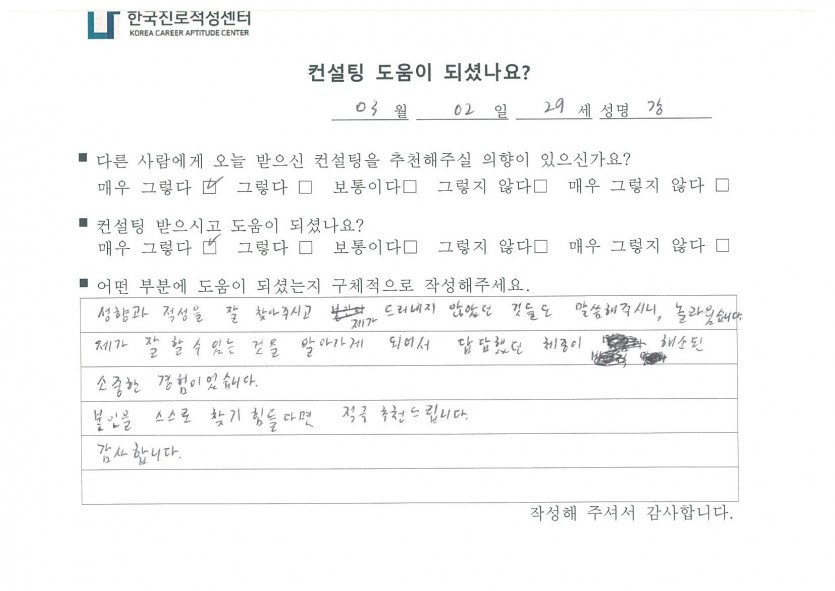 한국진로적성센터
KOREA CAREER APTITUDE CENTER
컨설팅 도움이 되셨나요?
03 월 02 일 29 세 성명 강
■ 다른 사람에게 오늘 받으신 컨설팅을 추천해주실 의향이 있으신가요?
매우 그렇다 ☑ 그렇다 □ 보통이다□ 그렇지 않다□ 매우 그렇지 않다 □
■ 컨설팅 받으시고 도움이 되셨나요?
매우 그렇다 ☑ 그렇다 □ 보통이다□ 그렇지 않다□ 매우 그렇지 않다 □
■ 어떤 부분에 도움이 되셨는지 구체적으로 작성해주세요.
성향과 적성을 잘 찾아주시고 제가 드러내지 않았던 것들도 말씀해주시니, 놀라웠습니다.
제가 잘 할 수 있는 것을 알아가게 되어서 답답했던 체증이 해소된
소중한 경험이었습니다.
본인을 스스로 찾기 힘들다면 적극 추천드립니다.
감사합니다.
작성해 주셔서 감사합니다.